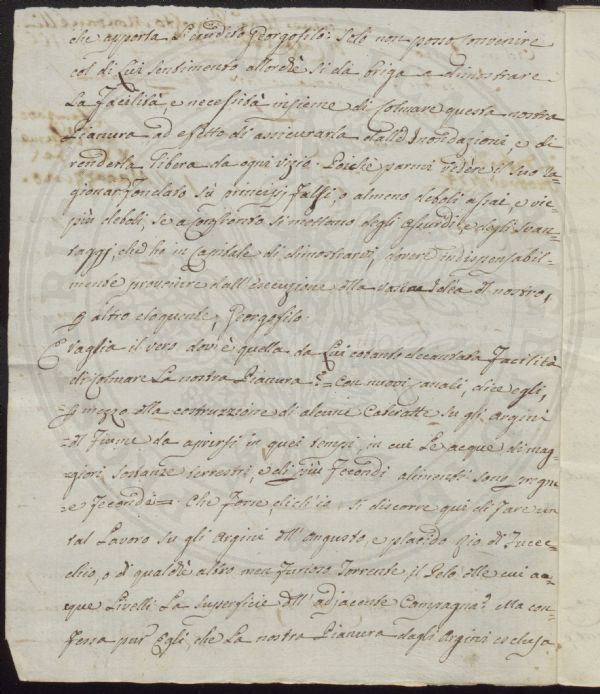 che apporta l'erudito Georgofilo: Solo non posso convenire
col di Lui sentimento allorchè si da briga a dimostrare
La Facilità, e necessità insieme di Colmare questa nostra
Pianura ad efetto di assicurarla dalle Inondazioni, e di
renderla libera da ogni vizio. Poichè parmi vedere il suo ra-
gionar fondato su principj falsi, o almeno deboli assai, e vie-
più deboli, se a Confronto si mettano degli assurdi, e degli Svan-
taggj, che ho in Capitale di dimostrarvi, dovere indispensabil-
mente provenire dall'esecuzione della Idea del nostro,
p altro eloquente, Georgofilo.
E vaglia il vero dov'è quella da Lui cotanto decantata Facilità
di Colmare La nostra Pianura? = Con nuovi Canali, dice egli,
= p mezzo della costruzzione di alcune Cateratte su gli Argini
= del Fiume da aprirsi in quei tempi, in cui Le acque di mag-
= giori sostanze terrestri, e di più Fecondi alimenti sono pregne
= e Feconde =. Che Forse dich'io, si discorre quì di Fare un
tal Lavoro su gli Argini dell'angusto, e placido Rio di Fucec-
chio, o di qualche altro men Furioso Torrente il Pelo delle cui ac-
que Livelli La superficie dell'adjacente Campagna? Ma con-
fessa pur Egli, che La nostra Pianura dagli Argini esclusa